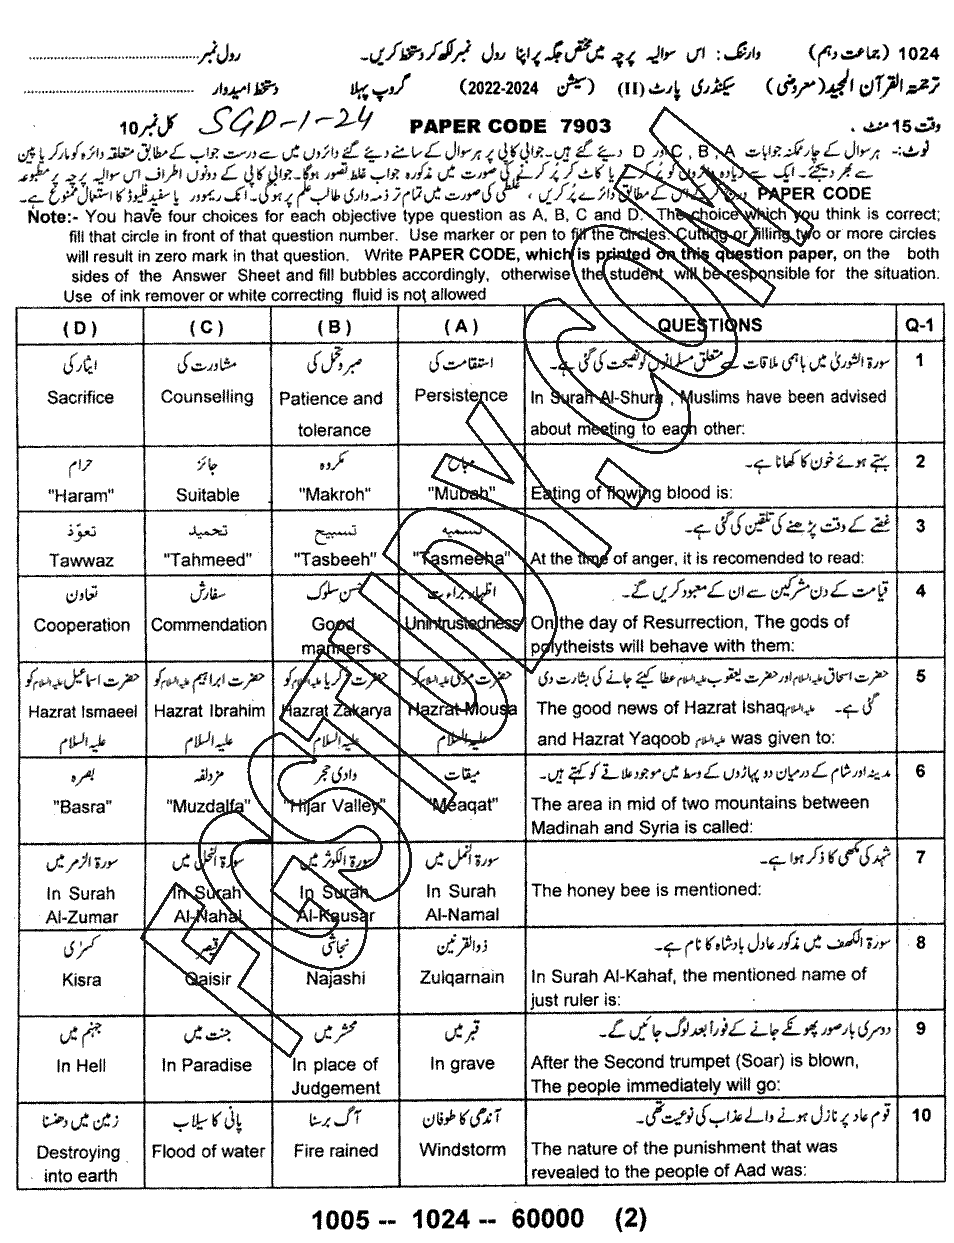 1024 (جماعت دہم) وارننگ: اس سوالیہ پرچہ میں مختص جگہ پر اپنا رول نمبر لکھ کر دستخط کریں۔ رول نمبر
ترجمۃ القرآن المجید (معروضی) سیکنڈری پارٹ (II) (سیشن 2022-2024) گروپ پہلا دستخط امیدوار
وقت 15 منٹ PAPER CODE 7903 SGD-1-24 کل نمبر 10
نوٹ:- ہر سوال کے چار ممکنہ جوابات A, B, C اور D دیئے گئے ہیں۔ جوابی کاپی پر ہر سوال کے سامنے دیئے گئے دائروں میں سے درست جواب کے مطابق متعلقہ دائرہ کو مارکر یا پین
سے بھر دیجئے۔ ایک سے زیادہ دائروں کو پُر کرنے یا کاٹ کر پُر کرنے کی صورت میں مذکورہ جواب غلط تصور ہوگا۔ جوابی کاپی کے دونوں اطراف اس سوالیہ پرچہ پر مطبوعہ
PAPER CODE درج کر کے اس کے مطابق دائرے پُر کریں، غلطی کی صورت میں تمام تر ذمہ داری طالب علم پر ہوگی۔ انک ریموور یا سفید فلیوڈ کا استعمال ممنوع ہے۔
Note:- You have four choices for each objective type question as A, B, C and D. The choice which you think is correct;
fill that circle in front of that question number. Use marker or pen to fill the circles. Cutting or filling two or more circles
will result in zero mark in that question. Write PAPER CODE, which is printed on this question paper, on the both
sides of the Answer Sheet and fill bubbles accordingly, otherwise the student will be responsible for the situation.
Use of ink remover or white correcting fluid is not allowed
( D ) ( C ) ( B ) ( A ) QUESTIONS Q-1
ایثار کی مشاورت کی صبر و تحمل کی استقامت کی سورۃ الشوریٰ میں باہمی ملاقات سے متعلق مسلمانوں کو نصیحت کی گئی ہے۔ 1
Sacrifice Counselling Patience and Persistence In Surah Al-Shura , Muslims have been advised
tolerance about meeting to each other:
حرام جائز مکروہ مباح بہتے ہوئے خون کا کھانا ہے۔ 2
"Haram" Suitable "Makroh" "Mubah" Eating of flowing blood is:
تعوّذ تحمید تسبیح تسمیہ غصے کے وقت پڑھنے کی تلقین کی گئی ہے۔ 3
Tawwaz "Tahmeed" "Tasbeeh" "Tasmeeha" At the time of anger, it is recomended to read:
تعاون سفارش حسن سلوک اظہار براءت قیامت کے دن مشرکین سے ان کے معبود کریں گے۔ 4
Cooperation Commendation Good Unintrustedness On the day of Resurrection, The gods of
manners polytheists will behave with them:
حضرت اسماعیل علیہ السلام کو حضرت ابراہیم علیہ السلام کو حضرت زکریا علیہ السلام کو حضرت موسیٰ علیہ السلام کو حضرت اسحاق علیہ السلام اور حضرت یعقوب علیہ السلام عطا کیئے جانے کی بشارت دی 5
Hazrat Ismaeel Hazrat Ibrahim Hazrat Zakarya Hazrat Mousa The good news of Hazrat Ishaq علیہ السلام گئی ہے۔
علیہ السلام علیہ السلام علیہ السلام علیہ السلام and Hazrat Yaqoob علیہ السلام was given to:
بصرہ مزدلفہ وادی حجر میقات مدینہ اور شام کے درمیان دو پہاڑوں کے وسط میں موجود علاقے کو کہتے ہیں۔ 6
"Basra" "Muzdalfa" "Hijar Valley" "Meaqat" The area in mid of two mountains between
Madinah and Syria is called:
سورۃ الزمر میں سورۃ النحل میں سورۃ الکوثر میں سورۃ النمل میں شہد کی مکھی کا ذکر ہوا ہے۔ 7
In Surah In Surah In Surah In Surah The honey bee is mentioned:
Al-Zumar Al-Nahal Al-Kausar Al-Namal
کسریٰ قیصر نجاشی ذوالقرنین سورۃ الکھف میں مذکور عادل بادشاہ کا نام ہے۔ 8
Kisra Qaisir Najashi Zulqarnain In Surah Al-Kahaf, the mentioned name of
just ruler is:
جہنم میں جنت میں محشر میں قبر میں دوسری بار صور پھونکے جانے کے فوراً بعد لوگ جائیں گے۔ 9
In Hell In Paradise In place of In grave After the Second trumpet (Soar) is blown,
Judgement The people immediately will go:
زمین میں دھنسنا پانی کا سیلاب آگ برسنا آندھی کا طوفان قوم عاد پر نازل ہونے والے عذاب کی نوعیت تھی۔ 10
Destroying Flood of water Fire rained Windstorm The nature of the punishment that was
into earth revealed to the people of Aad was:
1005 -- 1024 -- 60000 (2)
FGSTUDY.COM